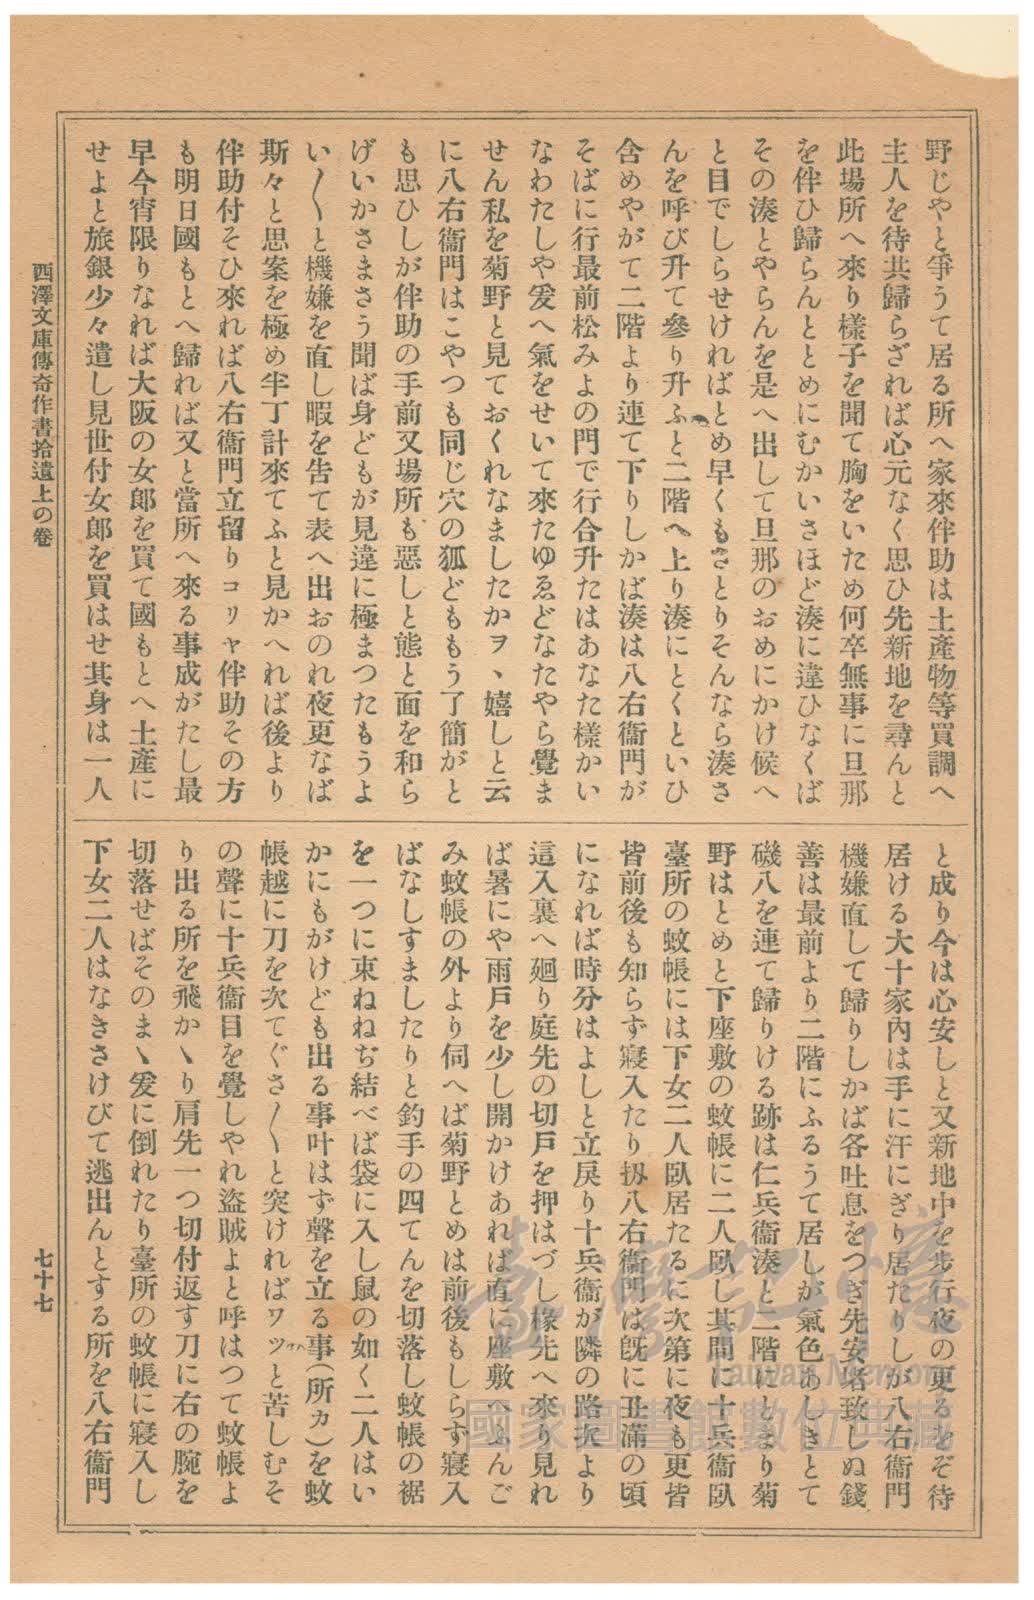 野じやと爭うて居る所へ家來伴助は土產物等買調へ
主人を待共歸らざれば心元なく思ひ先新地を尋んと
此場所へ來り樣子を聞て胸をいため何卒無事に旦那
を伴ひ歸らんととめにむかいさほど湊に違ひなくば
その湊とやらんを是へ出して旦那のおめにかけ候へ
と目でしらせければとめ早くもさとりそんなら湊さ
んを呼び升て參り升ふと二階へ上り湊にとくといひ
含めやがて二階より連て下りしかば湊は八右衞門が
そばに行最前松みよの門で行合升たはあなた樣かい
なわたしや爰へ氣をせいて來たゆゑどなたやら覺ま
せん私を菊野と見ておくれなましたかヲヽ嬉しと云
に八右衞門はこやつも同じ穴の狐どももう了簡がと
も思ひしが伴助の手前又場所も惡しと態と面を和ら
げいかさまさう聞ば身どもが見違に極まつたもうよ
い〳〵と機嫌を直し暇を吿て表へ出おのれ夜更なば
斯々と思案を極め半丁計來てふと見かへれば後より
伴助付そひ來れば八右衞門立留りコリャ伴助その方
も明日國もとへ歸れば又と當所へ來る事成がたし最
早今宵限りなれば大阪の女郞を買て國もとへ土產に
せよと旅銀少々遣し見世付女郞を買はせ其身は一人
と成り今は心安しと又新地中を步行夜の更るをぞ待
居ける大十家內は手に汗にぎり居たりしが八右衞門
機嫌直して歸りしかば各吐息をつぎ先安堵致しぬ錢
善は最前より二階にふるうて居しが氣色あしきとて
磯八を連て歸りける跡は仁兵衞湊と二階にとまり菊
野はとめと下座敷の蚊帳に二人臥し其間に十兵衞臥
臺所の蚊帳には下女二人臥居たるに次第に夜も更皆
皆前後も知らず寢入たり扨八右衞門は旣に丑滿の頃
になれば時分はよしと立戾り十兵衞が隣の路次より
這入裏へ廻り庭先の切戶を押はづし椽先へ來り見れ
ば暑にや雨戶を少し開かけあれば直に座敷へふんご
み蚊帳の外より伺へば菊野とめは前後もしらず寢入
ばなしすましたりと釣手の四てんを切落し蚊帳の裾
を一つに束ねねぢ結べば袋に入し鼠の如く二人はい
かにもがけども出る事叶はず聲を立る事(所カ)を蚊
帳越に刀を次てぐさ〳〵と突ければワッと苦しむそ
の聲に十兵衞目を覺しやれ盜賊よと呼はつて蚊帳よ
り出る所を飛かゝり肩先一つ切付返す刀に右の腕を
切落せばそのまゝ爰に倒れたり臺所の蚊帳に寢入し
下女二人はなきさけびて逃出んとする所を八右衞門
西澤文庫傳奇作書拾遺上の卷
七十七
臺灣記憶
Taiwan Memory
國家圖書館數位典藏